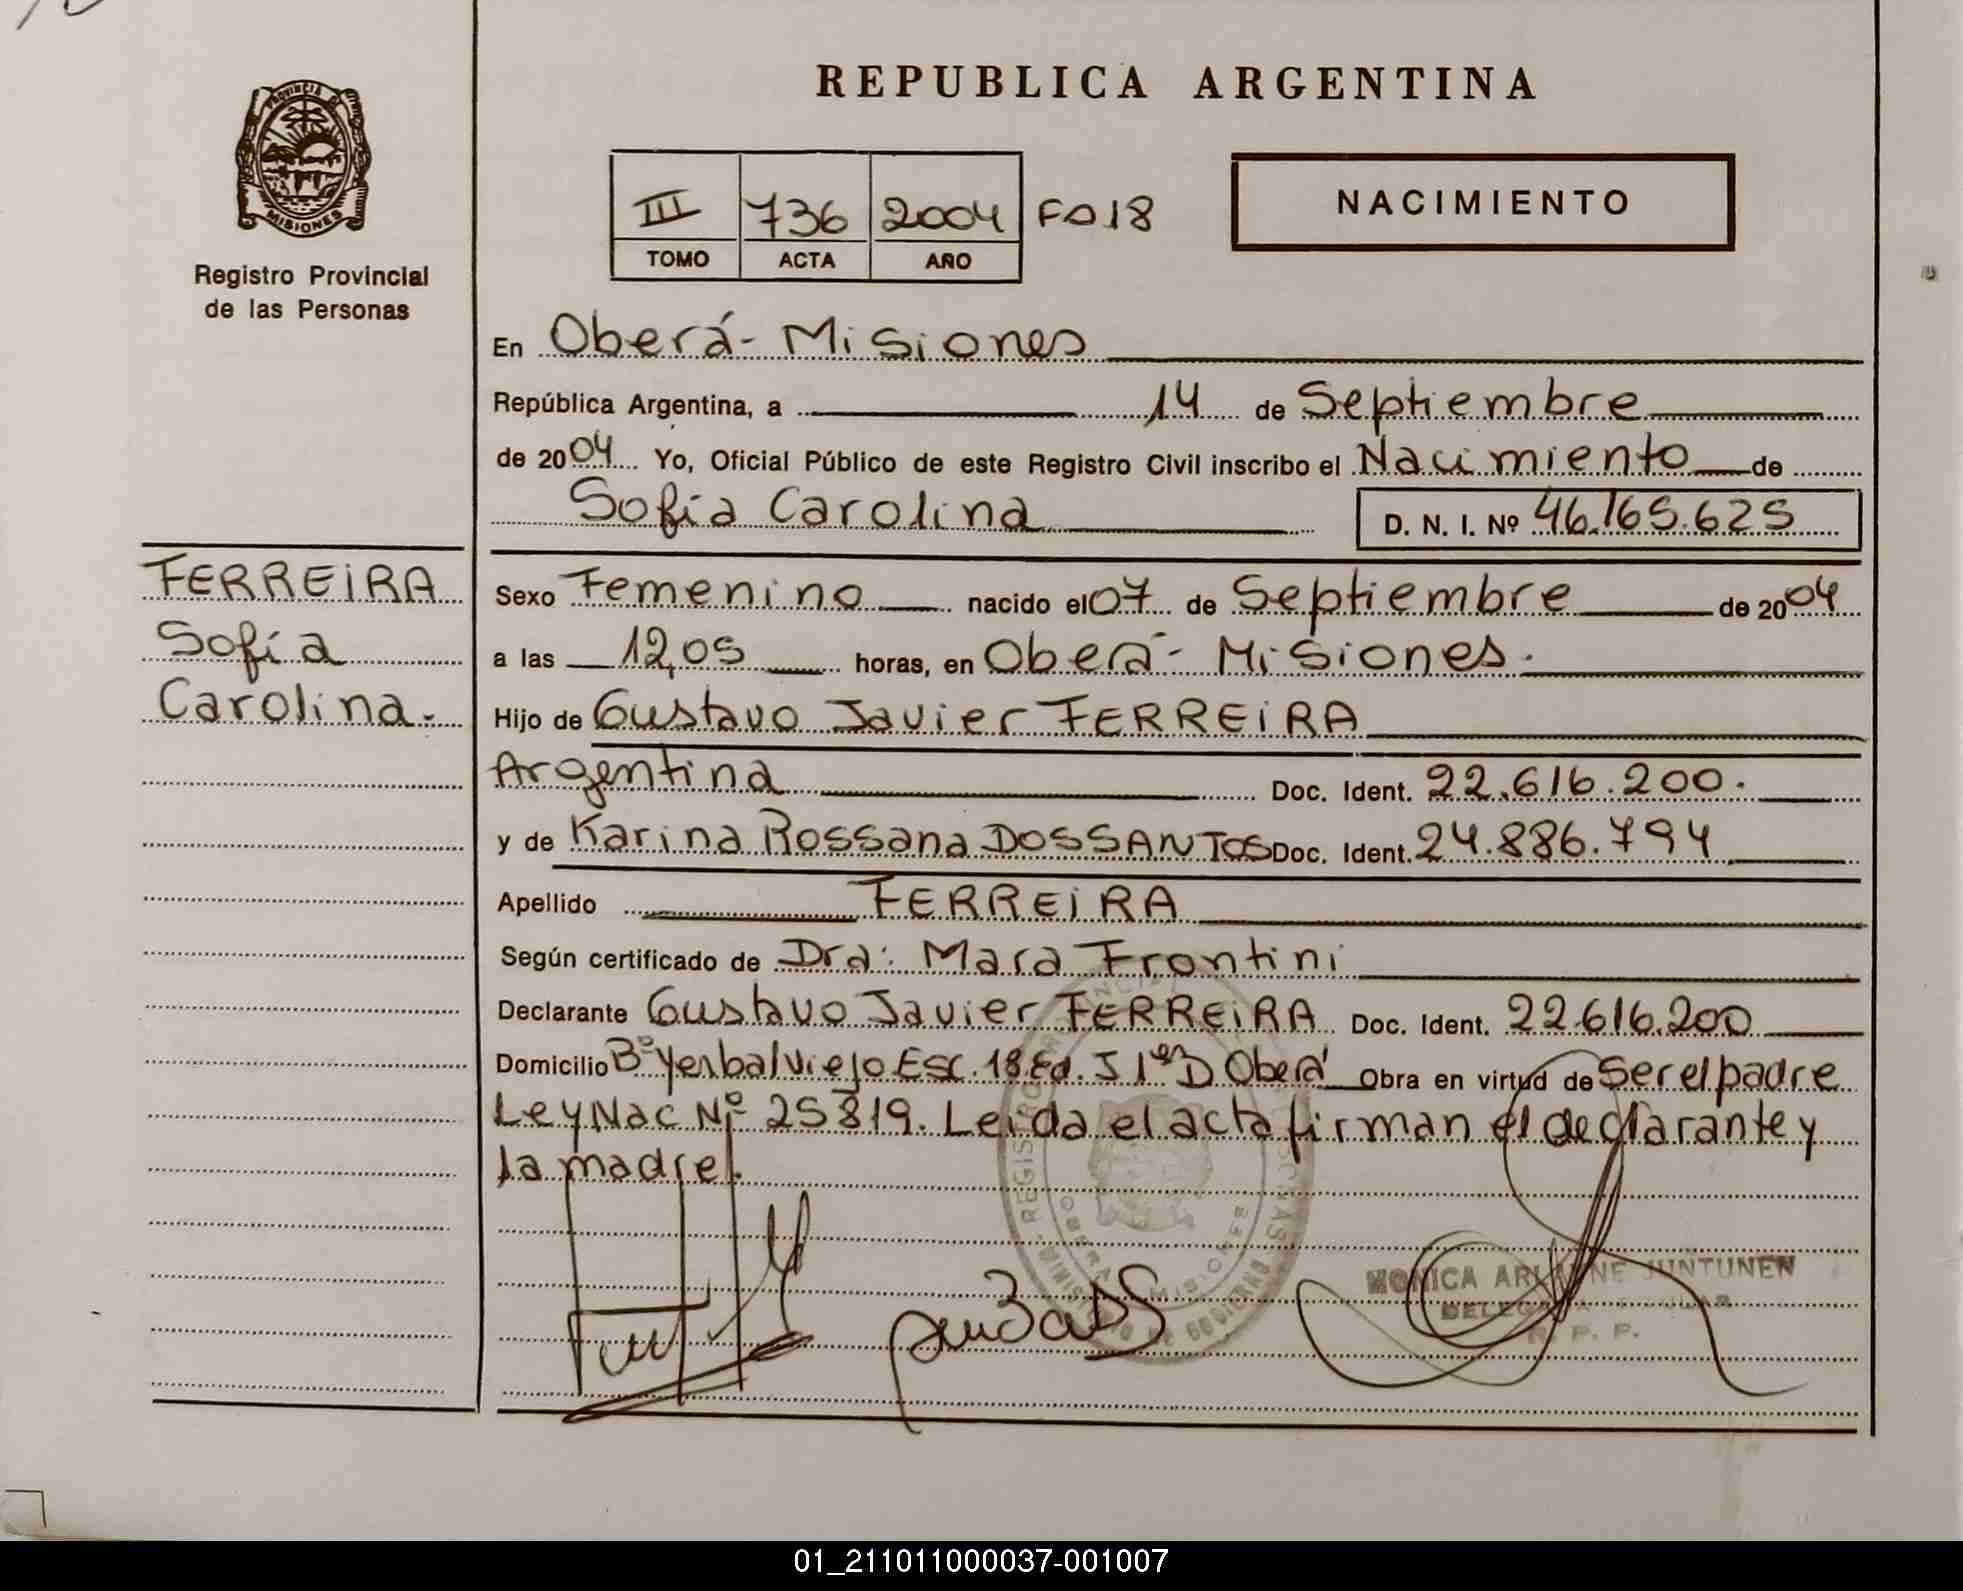 REPUBLICA ARGENTINA
PROVINCIA DE MISIONES
Registro Provincial
de las Personas
III 736 2004 Fº 018
TOMO ACTA AÑO
NACIMIENTO
En Oberá - Misiones
República Argentina, a 14 de Septiembre
de 2004 Yo, Oficial Público de este Registro Civil inscribo el Nacimiento de
Sofía Carolina D. N. I. Nº 46.165.625
FERREIRA
Sofía
Carolina.-
Sexo Femenino nacido el 07 de Septiembre de 2004
a las 12,05 horas, en Oberá - Misiones.
Hijo de Gustavo Javier FERREIRA
Argentina Doc. Ident. 22.616.200.
y de Karina Rossana DOSSANTOS Doc. Ident. 24.886.794
Apellido FERREIRA
Según certificado de Dra: Mara Frontini
Declarante Gustavo Javier FERREIRA Doc. Ident. 22.616.200
Domicilio Bº Yerbal viejo Esc. 18 Ed. J 1er D Oberá Obra en virtud de Ser el padre
Ley Nac Nº 25819. Leida el acta firman el declarante y
la madre.
MONICA ARIADNE JUNTUNEN
DELEGADA TITULAR
R. P. P.
01_211011000037-001007